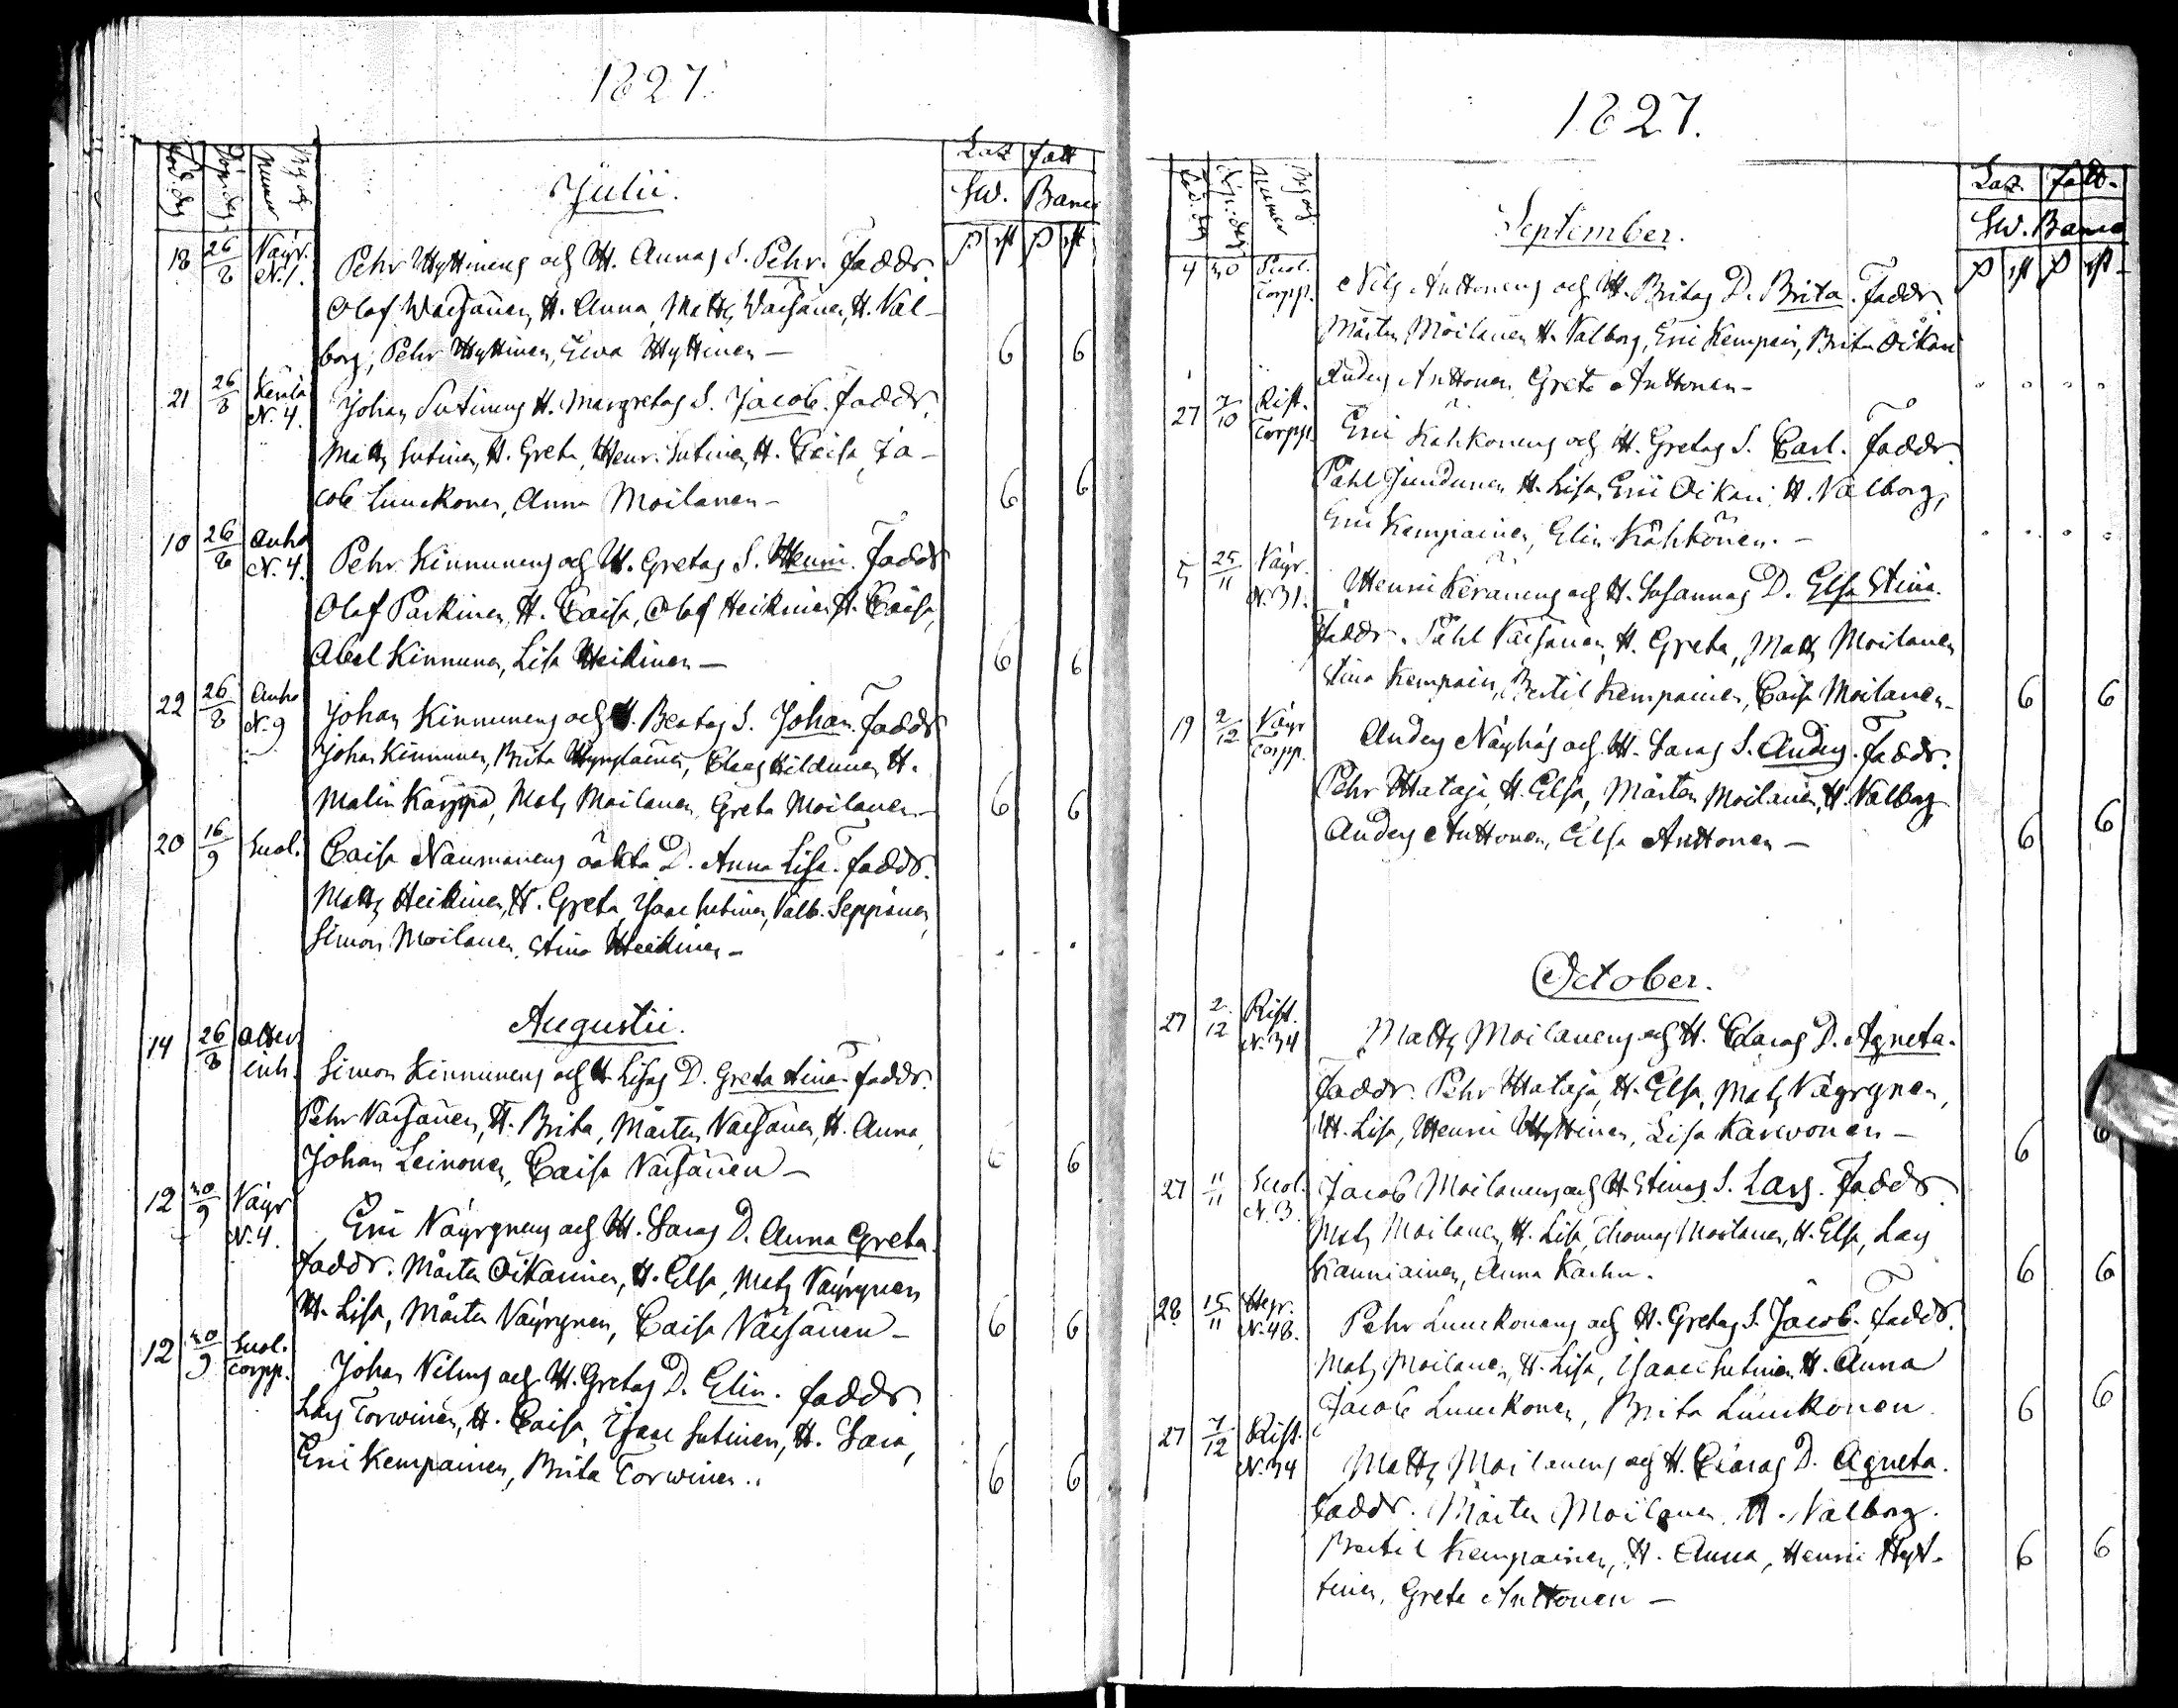 1827.
Född. dag
Döpn: dag
By och Numer
Laz fatt
Sw. Banco
Julii.
18 26/8 Näyr. N. 1. Pehr Hyttinens och H. Annas S. Pehr. Faddr.
Olof Waisänen, H. Anna, Matts Waisänen, H. Val-
borg, Pehr Hyttinen, Ewa Hyttinen — 6 6
21 26/8 N. 4. Johan Sutinens H. Margretas S. Jacob. Faddr.
Matts Sutinen, H. Greta, Henr. Sutinen, H. Caisa, Ja-
cob Luuckonen, Anna Moilanen - 6 6
10 26/8 N. 4. Pehr Kinnunens och H. Gretas S. Henric. Faddr
Olof Parkinen, H. Caisa, Olof Heikinen H. Caisa,
Abel Kinnunen, Lisa Heikinen — 6 6
22 26/8 N. 9 Johan Kinnunens och H. Beatas S. Johan. Faddr
Johan Kinnunen, Brita Claes Hildunen H.
Malin Karppa, Mats Moilanen, Greta Moilanen — 6 6
20 16/9 Suol. Caisa Naumanens oäkta D. Anna Lisa. Faddr.
Matts Heikinen, H. Greta, Isaac Sutinen, Valb. Seppänen,
Simon Moilanen, Stina Heikinen -
Augustii.
14 26/8 inh. Simon Kinnunens och H. Lisas D. Greta Stina. Faddr.
Pehr Vaisänen, H. Brita, Mårten Vaisänen, H. Anna,
Johan Leinonen, Caisa Vaisänen — 6 6
12 30/9 Näyr N. 4. Eric Näyrynens och H. Saras D. Anna Greta.
Faddr. Mårten Oikarinen, H. Elsa, Mats Näyrynen
H. Lisa, Mårten Näyrynen, Caisa Väisänen — 6 6
12 30/9 Suol. Torpp. Johan och H. Gretas D. Elin. Faddr.
Lars Torwinen, H. Caisa, Isaac Sutinen, H. Sara,
Eric Kempainen, Brita Torwinen. 6 6
1827.
By och Numer
Laz. fatt.
Sw. Banco
September.
4 30 Suol. Torpp. Nils Anttonens och H. Britas D. Brita. Faddr.
Mårten Moilanen H. Valborg, Eric Kempain, Brita Oikari
Anders Anttonen, Greta Anttonen -
27 7/10 Rist. Torpp. Eric Kähkönens och H. Gretas S. Carl. Faddr.
Påhl Jundunen H. Lisa, Eric Oikari, H. Valborg,
Eric Kempainen, Elin Kähkönen. -
5 25/11 Näyr. N. 31. Henric Keränens och H. Susannas D. Elsa Stina.
Faddr. Påhl Väisänen, H. Greta, Matts Moilanen
Stina Kempain, Bertil Kempainen, Caisa Moilanen - 6 6
19 2/12 Näyr Torpp. Anders Näyhäs och H. Saras S. Anders. Faddr.
Pehr Hataja, H. Elsa, Mårten Moilanen, H. Valborg,
Anders Anttonen, Elsa Anttonen — 6 6
October.
27 2/12 Rist. N. 34 Matts Moilanens och H. Claras D. Agneta.
Faddr. Pehr Hataja, H. Elsa, Mats Näyrynen,
H. Lisa, Henric Hyttinen, Lisa Karwonen — 6 6
27 11/11 Suol. N. 3. Jacob Moilanens och H. Stinas S. Lars. Faddr
Mats Moilanen, H. Lisa, Thomas Moilanen, H. Elsa, Lars
Kauniainen, Anna Karhu. 6 6
28 15/11 N. 48. Pehr Luuckonens och H. Gretas S. Jacob. Faddr.
Mats Moilanen, H. Lisa, Isaac Sutinen H. Anna
Jacob Luuckonen, Brita Luuckonen 6 6
27 7/12 Rist. N. 34 Matts Moilanens och H. Claras D. Agneta.
Faddr. Mårten Moilanen H. Valborg.
Bertil Kempainen, H. Anna, Henric Hyt-
tinen, Greta Anttonen — 6 6